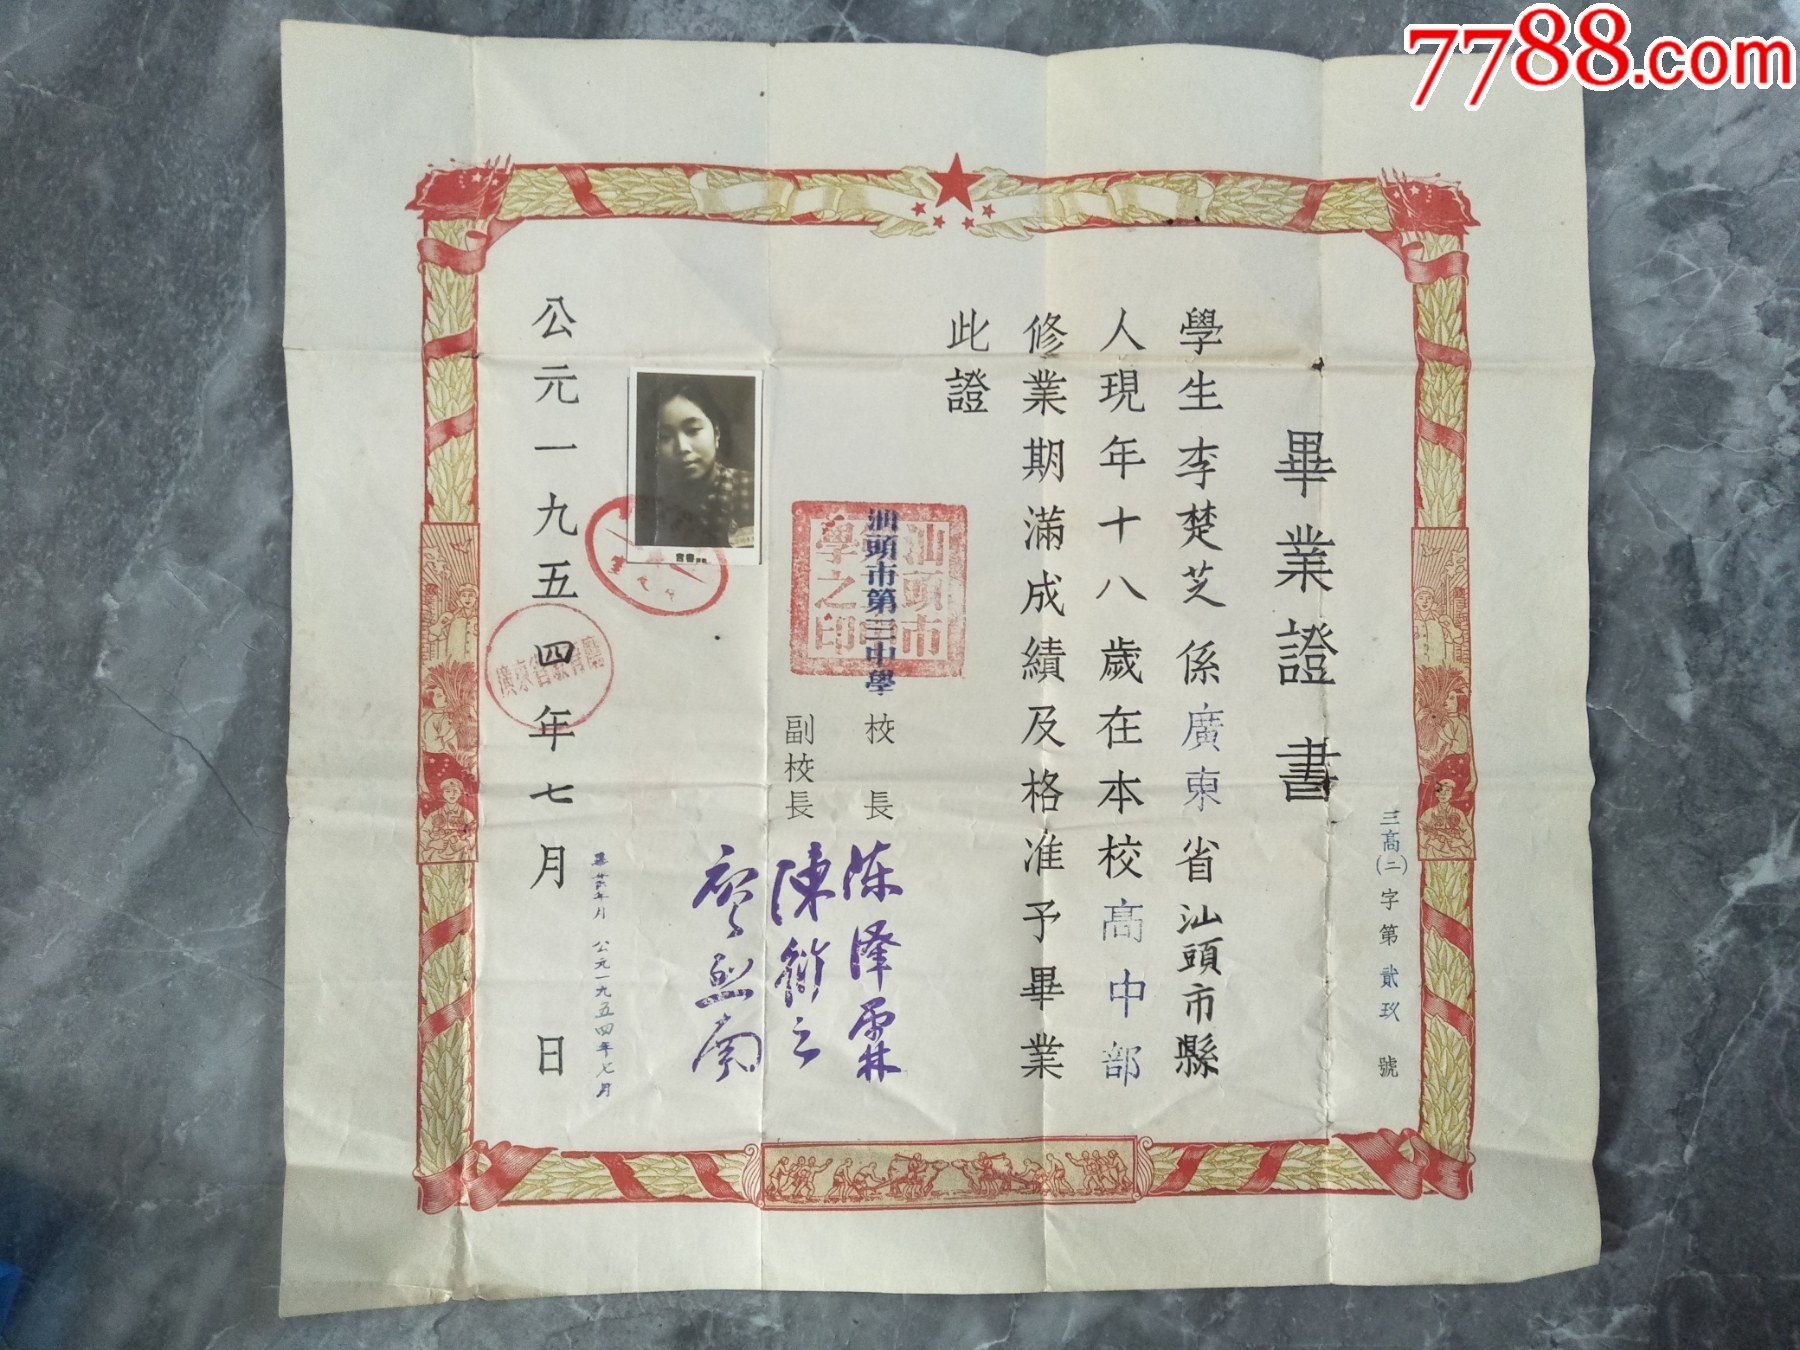 7788.com
畢業證書
三高(二)字第貳玖號
學生李楚芝係廣東省汕頭市縣
人現年十八歲在本校高中部
修業期滿成績及格准予畢業
此證
汕頭市第三中學
校長
陈澤霖
副校長
陳衍之
公元一九五四年七月 日
公元一九五四年七月
廣東省教育廳